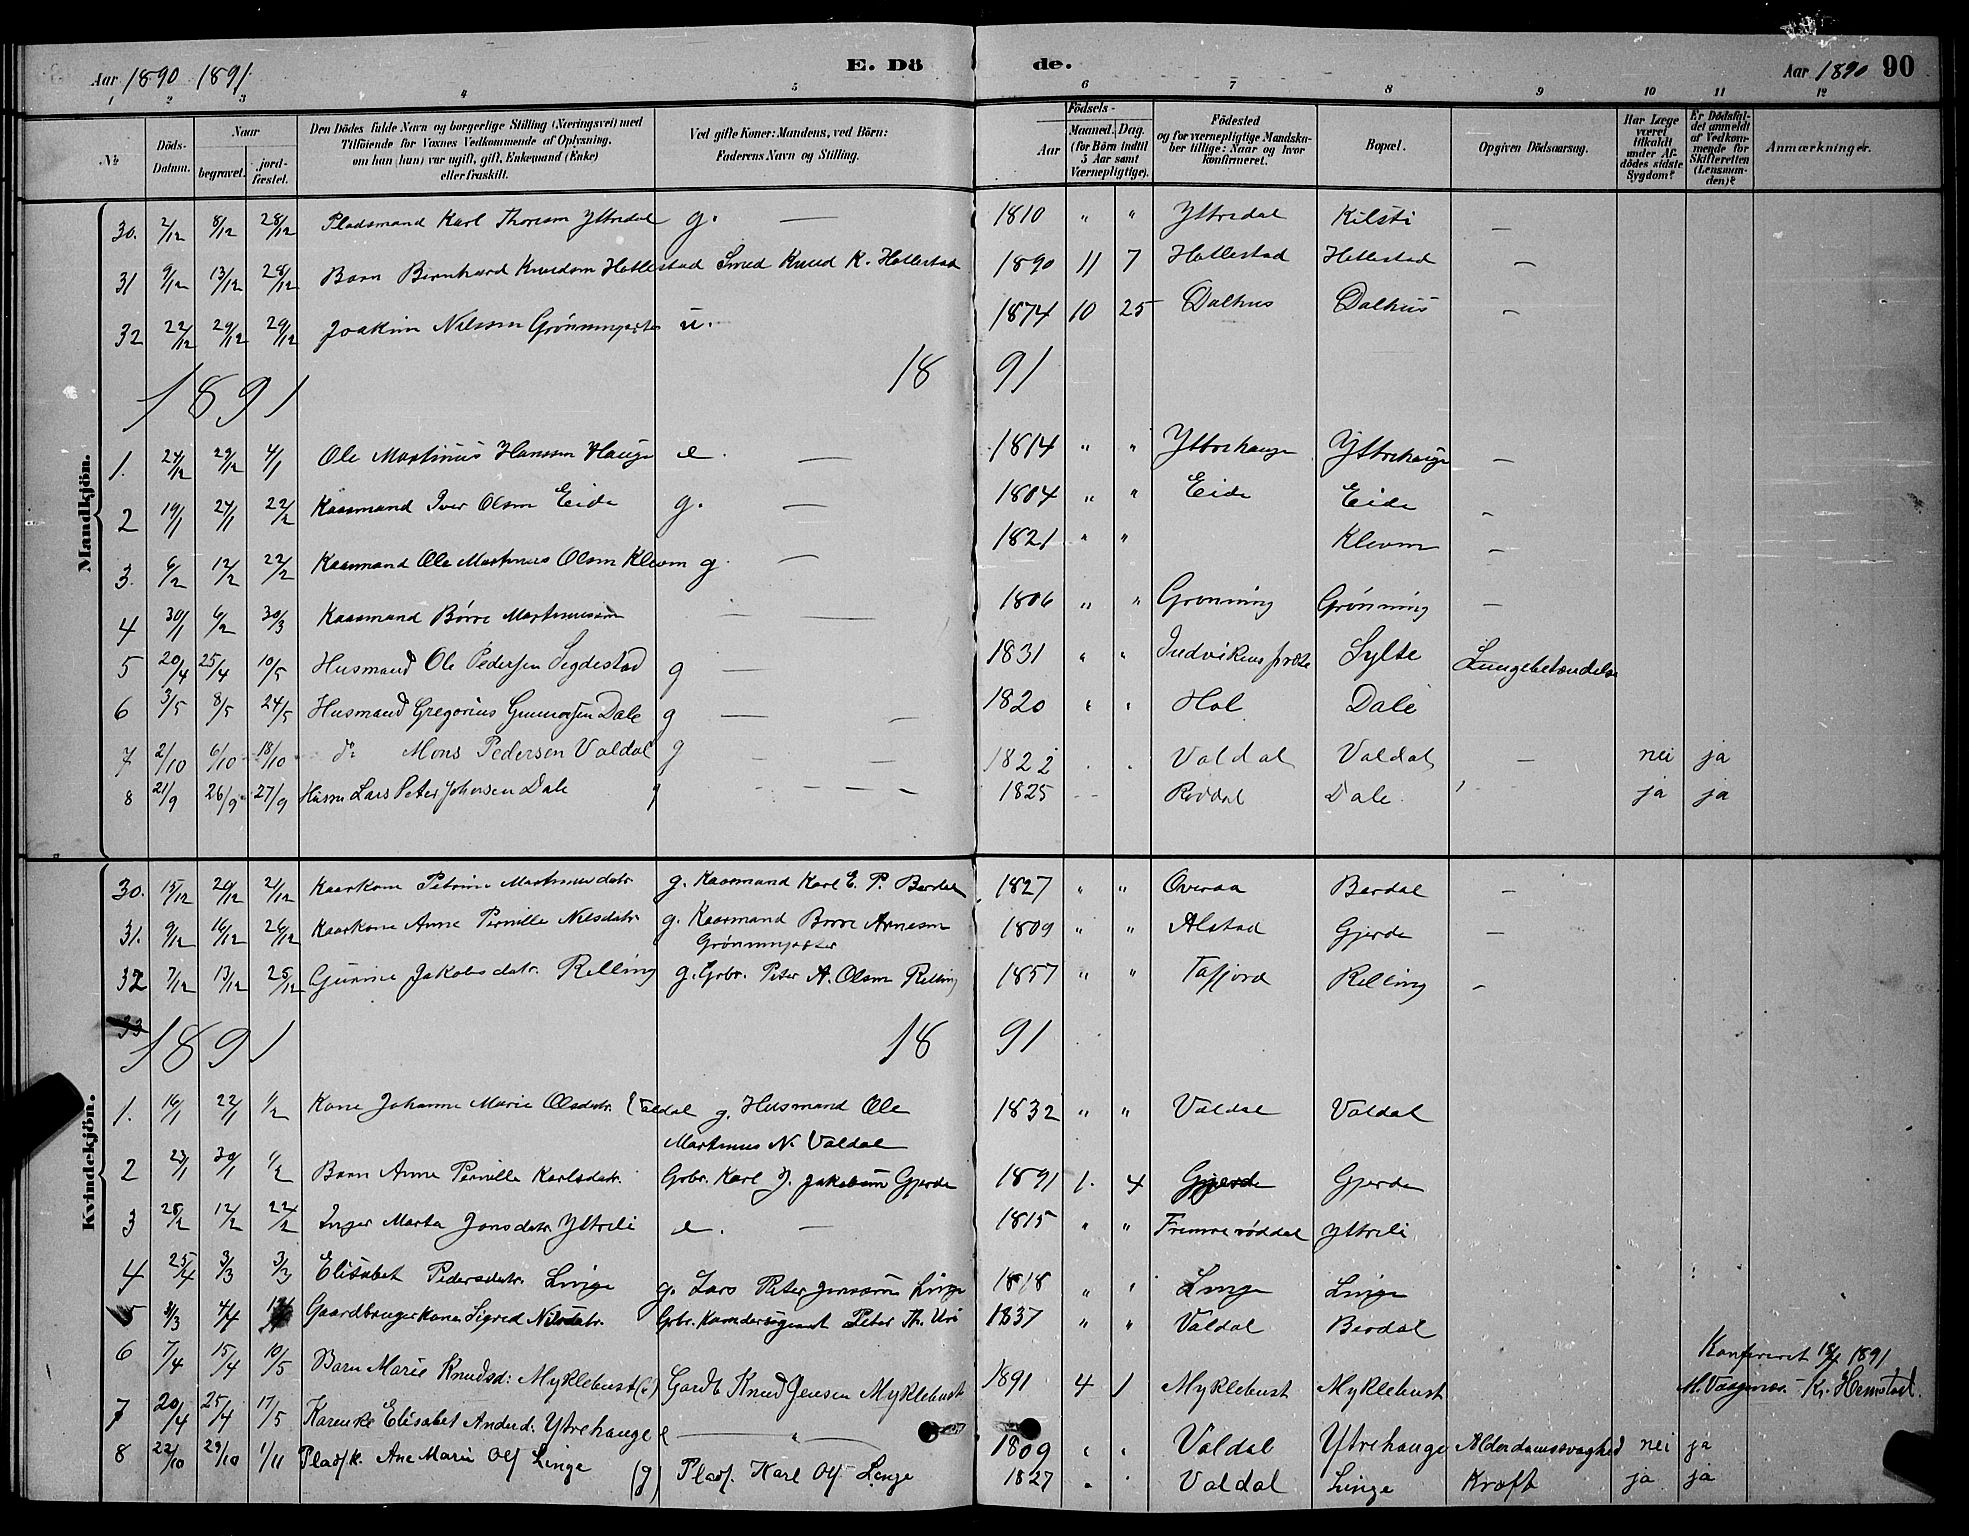 Aar 1890 1891.
E. Dö de.
Aar 1890 90
1 2 3 4 5 6 7 8 9 10 11 12
No
Döds-Datum.
Naar
begravet.
jord-fæstet.
Den Dödes fulde Navn og borgerlige Stilling (Næringsvei) med
Tilföiende for Voxnes Vedkommende af Oplysning,
om han (hun) var ugift, gift, Enkemand (Enke)
eller fraskilt.
Ved gifte Koner: Mandens, ved Börn:
Faderens Navn og Stilling.
Födsels-
Aar
Maaned. Dag.
(for Börn indtil
5 Aar samt
Værnepligtige).
Födested
og for værnepligtige Mandska-
ber tillige: Naar og hvor
konfirmeret.
Bopæl.
Opgiven Dödsaarsag.
Har Læge
været
tilkaldt
under Af-
dödes sidste
Sygdom?
Er Dödsfal-
det anmeldt
af Vedkom-
mende for
Skifteretten
(Lensman-
den)?
Anmærkninger.
Mandkjön.
30. 2/12 8/12 28/12 Pladsmand Karl Thoresen Yttredal g. — 1810 " " Yttredal Kilsti —
31 9/12 13/12 28/12 Barn Bernhard Knudsen Hatlestad Smed Knud K. Hatlestad 1890 11 7 Hatlestad Hatlestad —
32 22/12 29/12 29/12 Joakim Nilssen u. 1874 10 25 Dalhus Dalhus —
1891 1891
1. 24/12 29/12 4/1 Ole Martinus Hanssen Hauge e. — 1814 " " Yttrehauge Yttrehauge —
2 19/1 27/1 22/2 Kaarmand Iver Olsen Eide g. — 1804 " " Eide Eide —
3. 6/2 12/2 22/2 Kaarmand Ole Martinus Olsen Kleven g. — 1821 " " Kleven —
4 30/1 6/2 30/3 Kaarmand Börre Martinussen — — 1806 " " Grønning Grønning —
5 20/4 25/4 10/5 Husmand Ole Pedersen Segdestad g — 1831 " " Indvikens Sylte Lungebetændelse
6 3/5 8/5 24/5 Husmand Gregorius Gunnarsen Dale g — — 1820 " " Hol Dale
7 2/10 6/10 18/10 do Mons Pedersen Valdal g — — 1822 . . Valdal Valdal — nei ja
8 21/9 26/9 27/9 Husm Lars Peter Johnsen Dale g — — — 1825 - - Røddal Dale ja ja
Kvindekjön.
30. 15/12 20/12 21/12 Kaarkone Petrine Martinusdatr. g. Kaarmand Karl E. P. Berdal 1827 " " Overaa Berdal —
31. 9/12 16/12 26/12 Kaarkone Anne Pernille Nilsdatr. g. Kaarmand Børre Arnesen 1809 " " Alstad Gjerde —
32 7/12 13/12 25/12 Gurine Jakobsdatr. Relling g. Grbr. Peter A. Olsen Relling 1857 " " Tafjord Relling —
33
1891 1891
1. 16/1 22/1 1/2 Kone Johanne Marie Olsdatr. Valdal g. Husmand Ole 1832 " " Valdal Valdal
Martinus N. Valdal
2 23/1 30/1 1/2 Barn Anne Pernille Karlsdatr. Grbr. Karl J. Jakobsen Gjerde 1891 1. 4 Gjerde Gjerde
3 12/2 22/2 Inger Marta Jonsdatr Yttreli e. — 1815 " " Fremre røddal Yttreli
4 25/4 3/3 3/3 Elisabet Pedersdatr. Linge g. Lars Peter Jonssøn Linge 1818 " " Linge Linge
5 3/3 4/4 Gaardbrugerkone Sigred Nilsdatr. Grbr. Peter Th. Uri 1837 " " Valdal Berdal
6 7/4 15/4 10/5 Barn Marie Knudsd: Myklebust Gardb Knud Jensen Myklebust 1891 4 1 Myklebust Myklebust
Konfereret 18/4 1891
M. Vaagenes. - Kr. Hemstad.
7 20/4 25/4 17/5 Karenke Elisabet Andersd. Ytrehauge e — " — 1809 " " Valdal Ytrehauge Alderdomssvaghed nei ja
8 22/10 29/10 1/11 Pladsk. Ane Marie Ols Linge (g) Plads. Karl Ols Linge 1827 " " Valdal Linge Kræft ja ja